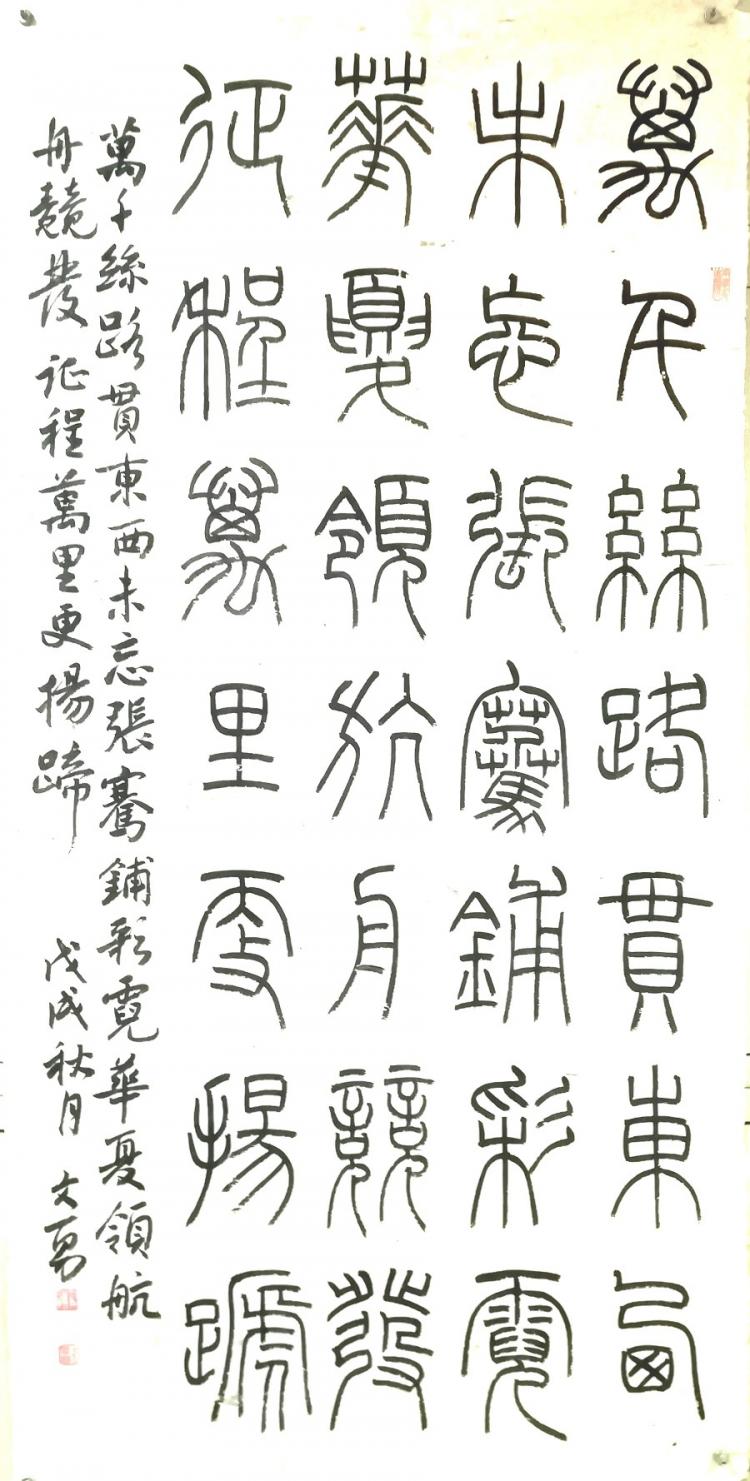 萬千絲路貫東西
未忘張騫鋪彩霓
華夏領航舟競發
征程萬里更揚蹄
萬千絲路貫東西未忘張騫鋪彩霓華夏領航
舟競發征程萬里更揚蹄 戊戌秋月 文勇